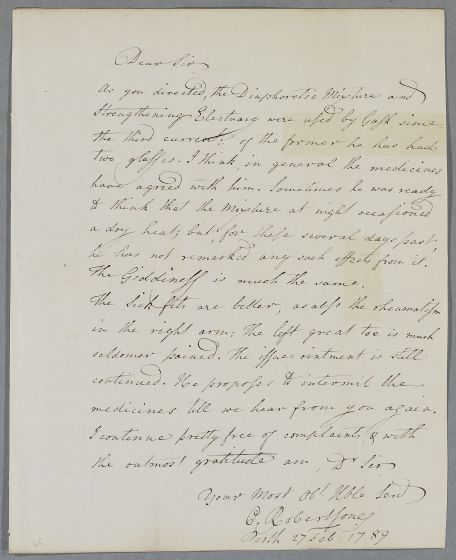 Dear Sir
As you directed, the Diaphoretic Mixture and
Strengthening Electuary were used by Capt since
the third current; of the fromer he has had
two glasses. I think, in general the medicines
have agreed with him. Sometimes he was ready
to think that the Mixture at night occasioned
a dry heat; but, for these several days past,
he has not remarked any such effects from it.
The Giddiness is much the same.
The Sick fits are better, as also the rheumatism
in the right arm; the left great toe is much
seldomer pained. the issue ointment is still
continued. He proposes to intermit the
medicines till we hear from you again.
I continue pretty free of complaints & with
the outmost gratitude am, Dr Sir
Your Most Obt Hble Servt
Robertson
Perth 27 Feb. 1789